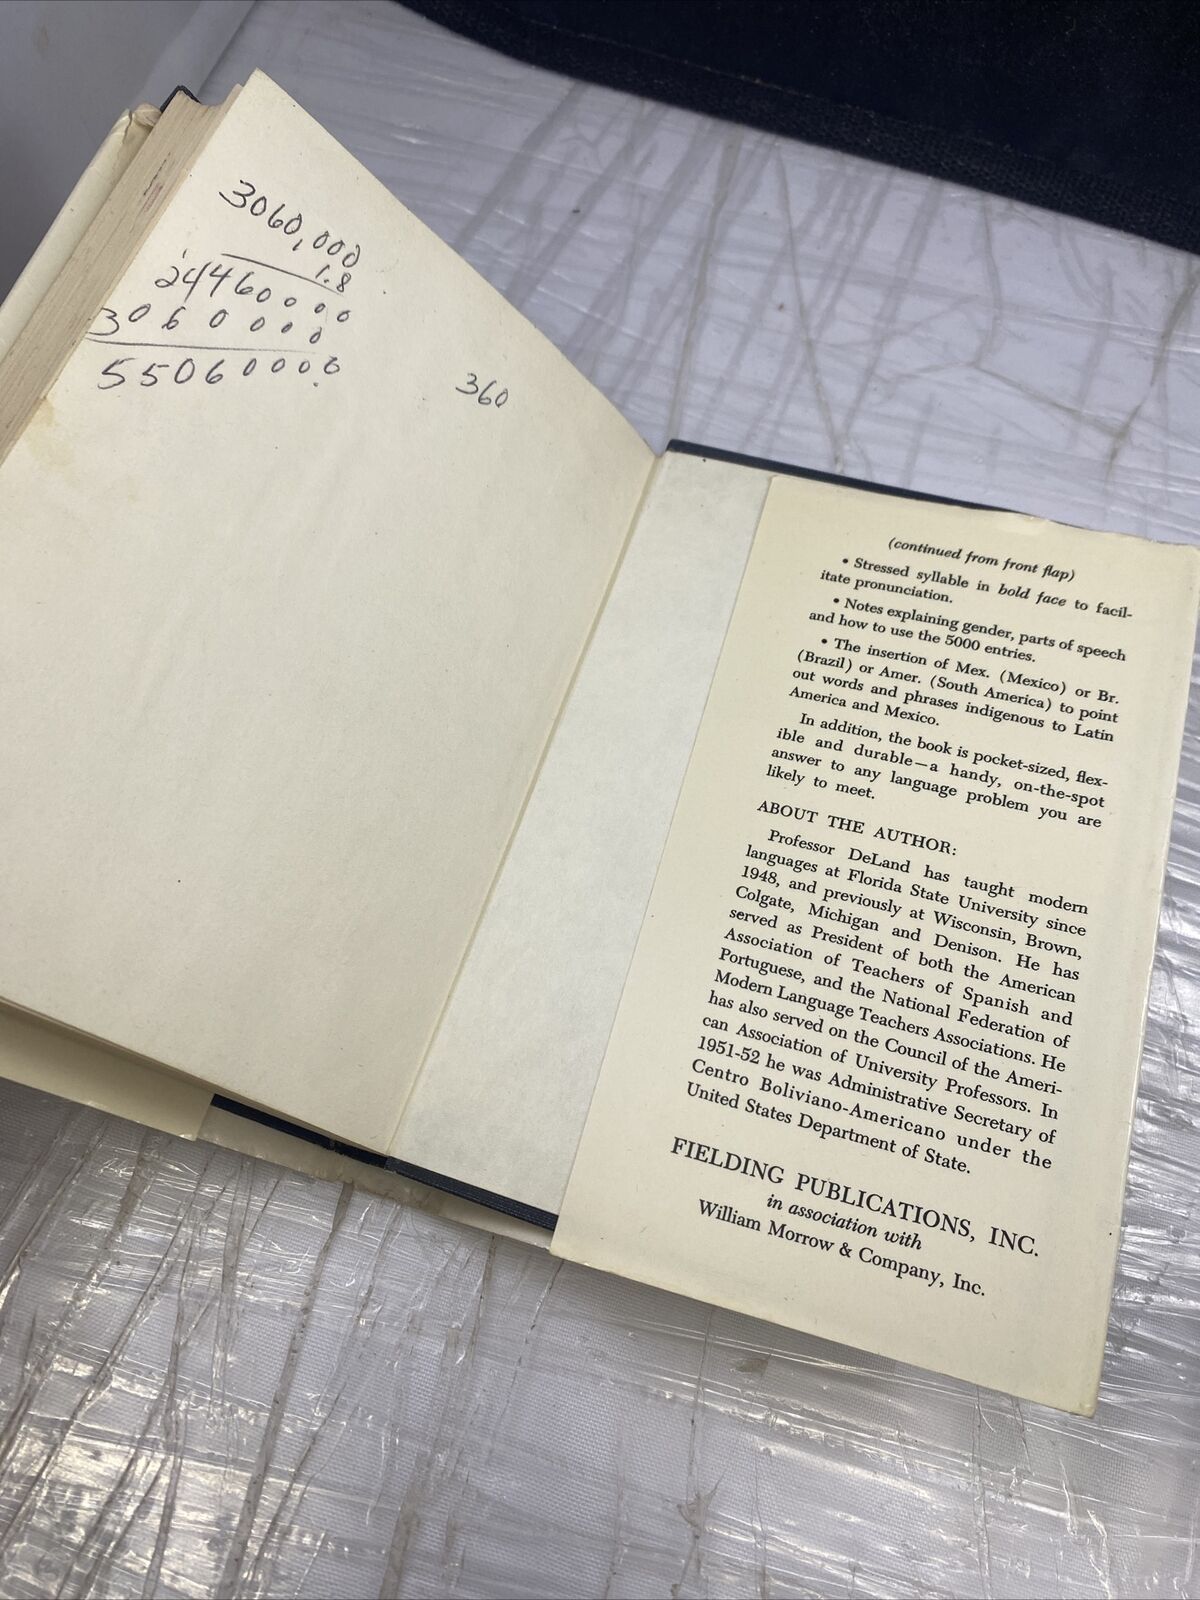 3060,000
1.8
24460000
3060000
550600000
360
(continued from front flap)
• Stressed syllable in bold face to facil-
itate pronunciation.
• Notes explaining gender, parts of speech
and how to use the 5000 entries.
• The insertion of Mex. (Mexico) or Br.
(Brazil) or Amer. (South America) to point
out words and phrases indigenous to Latin
America and Mexico.
In addition, the book is pocket-sized, flex-
ible and durable—a handy, on-the-spot
answer to any language problem you are
likely to meet.
ABOUT THE AUTHOR:
Professor DeLand has taught modern
languages at Florida State University since
1948, and previously at Wisconsin, Brown,
Colgate, Michigan and Denison. He has
served as President of both the American
Association of Teachers of Spanish and
Portuguese, and the National Federation of
Modern Language Teachers Associations. He
has also served on the Council of the Ameri-
can Association of University Professors. In
1951-52 he was Administrative Secretary of
Centro Boliviano-Americano under the
United States Department of State.
FIELDING PUBLICATIONS, INC.
in association with
William Morrow & Company, Inc.